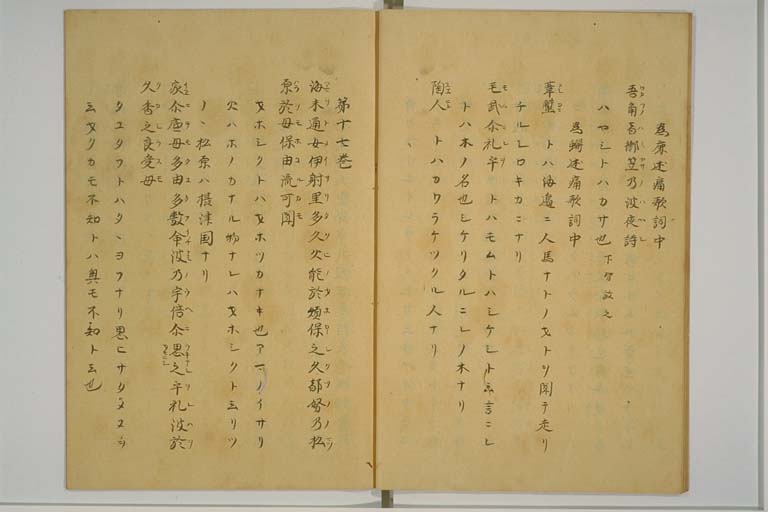 為鹿述痛歌詞中
吾角者御笠乃波夜詩
ハヤシトハカサ也 下ケ效之
為蟹述痛歌詞中
葦蟹 トハ海邉ニ人馬ナトノヲトソ聞テ走リ
チルヒロキカニナリ
毛武尒礼乎 トハモムトハシケシト云言ニレ
トハ木ノ名也シケリタルニレノ木ナリ
陶人 トハカワラケツクル人ナリ
第十七巻
海未通女伊射里多久火能於煩保之久都努乃松
原於母保由流可聞
ヲホシクトハヲホツカナキ也アマノイサリ
火ハホノカナル物ナレハヲホシクト云リツ
ノヽ松原ハ摂津国ナリ
家尒底母多由多敷命波乃宇倍尒思之乎礼波於
久香之良受母
タユタフトハタヽヨフナリ思ヒサタメヌ
云ヲクカモ不知トハ奥モ不知ト云也